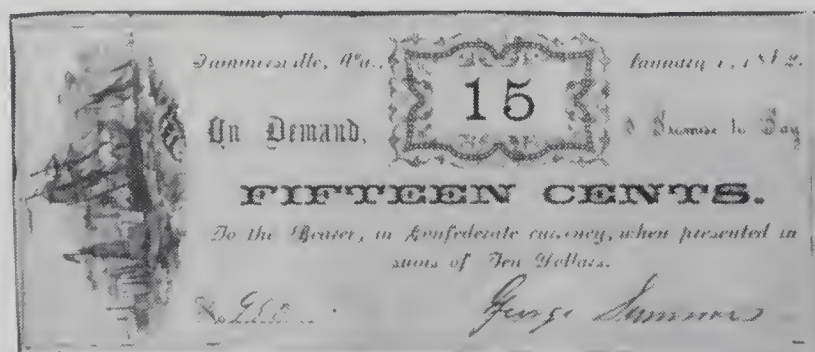 Summersville, Va., January 1, 1862.
15
On Demand, I Promise to Pay
FIFTEEN CENTS.
To the Bearer, in Confederate currency, when presented in
sums of Ten Dollars.
No
George Summers